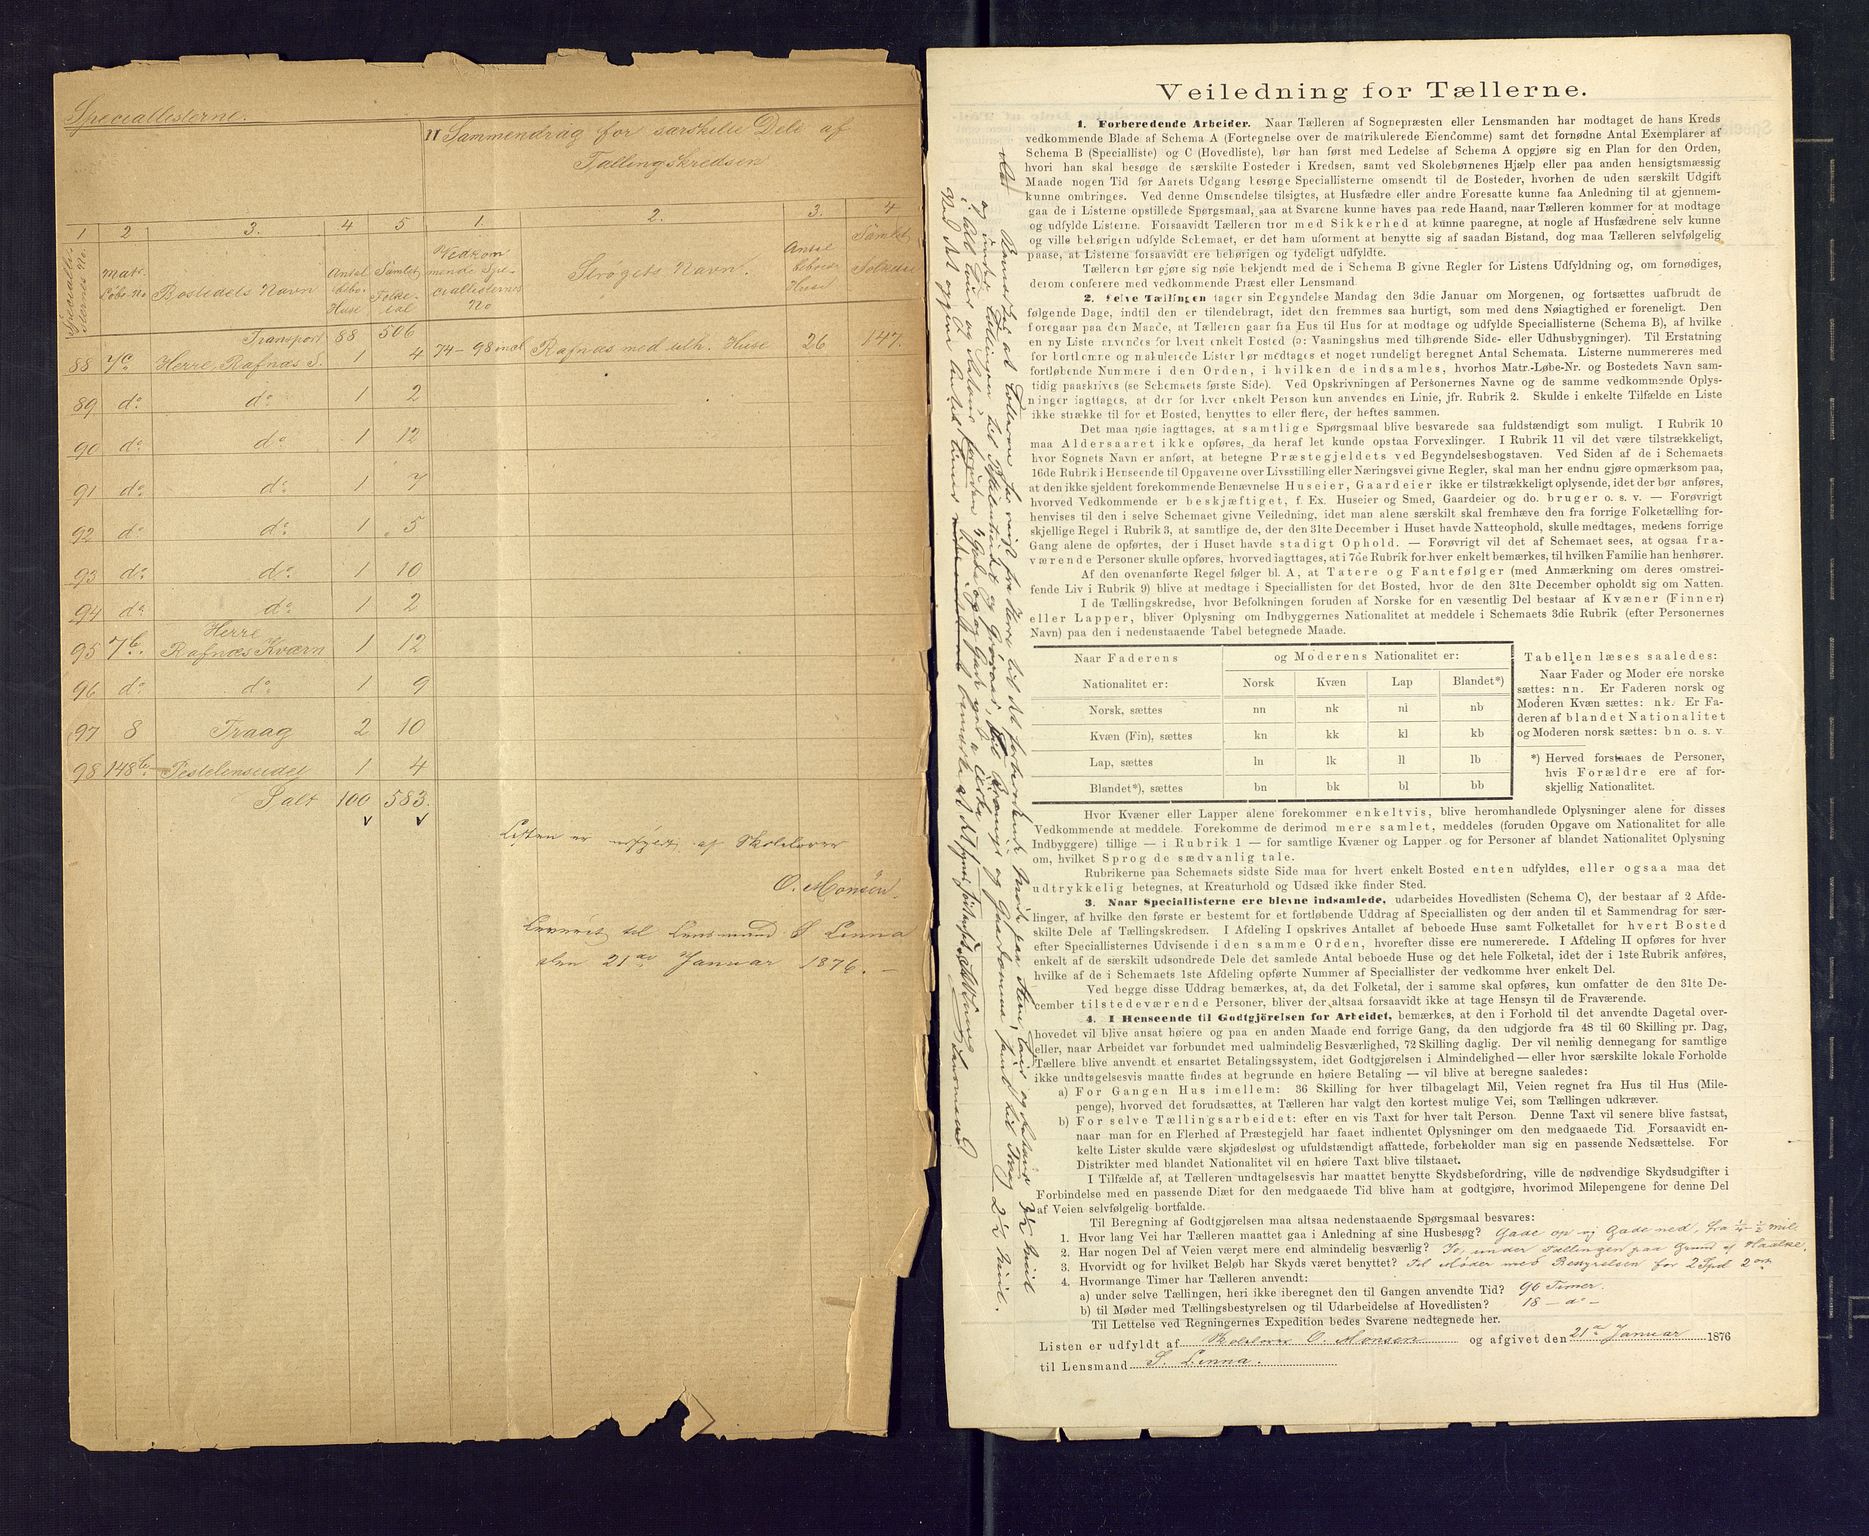 Speciallisterne.
II Sammendrag for særskilte Dele af
Tællingskredsen
1 2 3. 4 5 1. 2. 3. 4
Speciallisternes No. Matr. Løbe-No Bostedets Navn Antal bebo. Huse Samlet Folketal Vedkommende Speciallisternes No Strøgets Navn. Antal beboede Huse Samlet Folketal
Transport 88 506
88 7a Herre, Rafnæs S. 1 4 74-98 incl Rafnæs med ulh. Huse 26 147.
89 do do 1 2
90 do do 1 12
91 do do 1 7
92 do do 1 5
93 do do 1 10
94 do do 1 2
95 7b. Herre Rafnæs Kværn 1 12
96 do do 1 9
97 8 Traag 2 10
98 148b Testelensudet 1 4
Ialt 100 583.
Listen er udfyldt af Skolelærer
O. Monsen.
Leveret til Lensmand S Linna
den 21de Januar 1876. –
Veiledning for Tællerne.
1. Forberedende Arbeider. Naar Tælleren af Sognepræsten eller Lensmanden har modtaget de hans Kreds
vedkommende Blade af Schema A (Fortegnelse over de matrikulerede Eiendomme) samt det fornødne Antal Exemplarer af
Schema B (Specialliste) og C (Hovedliste), bør han først med Ledelse af Schema A opgjøre sig en Plan for den Orden,
hvori han skal besøge de særskilte Bosteder i Kredsen, samt ved Skolebørnenes Hjælp eller paa anden hensigtsmæssig
Maade nogen Tid før Aarets Udgang besørge Speciallisterne omsendt til de Bosteder, hvorhen de uden særskilt Udgift
kunne ombringes. Ved denne Omsendelse tilsigtes, at Husfædre eller andre Foresatte kunne faa Anledning til at gjennem-
gaa de i Listerne opstillede Spørgsmaal, saa at Svarene kunne haves paa rede Haand, naar Tælleren kommer for at modtage
og udfylde Listerne. Forsaavidt Tælleren tror med Sikkerhed at kunne paaregne, at nogle af Husfædrene selv kunne
og ville behørigen udfylde Schemaet, er det ham uforment at benytte sig af saadan Bistand, dog maa Tælleren selvfølgelig
paase, at Listerne forsaavidt ere behørigen og tydeligt udfyldte.
Tælleren bør gjøre sig nøie bekjendt med de i Schema B givne Regler for Listens Udfyldning og, om fornødiges,
derom conferere med vedkommende Præst eller Lensmand.
2. Selve Tællingen tager sin Begyndelse Mandag den 3die Januar om Morgenen, og fortsættes uafbrudt de
følgende Dage, indtil den er tilendebragt, idet den fremmes saa hurtigt, som med dens Nøiagtighed er foreneligt. Den
foregaar paa den Maade, at Tælleren gaar fra Hus til Hus for at modtage og udfylde Speciallisterne (Schema B), af hvilke
en ny Liste anvendes for hvert enkelt Bosted (ɔ: Vaaningshus med tilhørende Side- eller Udhusbygninger). Til Erstatning
for bortkomne og makulerede Lister bør medtages et noget rundeligt beregnet Antal Schemata. Listerne nummereres med
fortløbende Nummere i den Orden, i hvilken de indsamles, hvorhos Matr.-Løbe-Nr. og Bostedets Navn sam-
tidig paaskrives (se Schemaets første Side). Ved Opskrivningen af Personernes Navne og de samme vedkommende Oplys-
ninger iagttages, at der for hver enkelt Person kun anvendes en Linie, jfr. Rubrik 2. Skulde i enkelte Tilfælde en Liste
ikke strække til for et Bosted, benyttes to eller flere, der heftes sammen.
Det maa nøie iagttages, at samtlige Spørgsmaal blive besvarede saa fuldstændigt som muligt. I Rubrik 10
maa Aldersaaret ikke opføres, da heraf let kunde opstaa Forvexlinger. I Rubrik 11 vil det være tilstrækkeligt,
hvor Sognets Navn er anført, at betegne Præstegjeldets ved Begyndelsesbogstaven. Ved Siden af de i Schemaets
16de Rubrik i Henseende til Opgaverne over Livsstilling eller Næringsvei givne Regler, skal man her endnu gjøre opmærksom paa,
at den ikke sjeldent forekommende Benævnelse Huseier, Gaardeier ikke er tilstrækkeligt oplysende, idet der bør anføres,
hvorved Vedkommende er beskjæftiget, f. Ex. Huseier og Smed, Gaardeier og do. bruger o. s. v. — Forøvrigt
henvises til den i selve Schemaet givne Veiledning, idet man alene særskilt skal fremhæve den fra forrige Folketælling for-
skjellige Regel i Rubrik 3, at samtlige de, der den 31te December i Huset havde Natteophold, skulle medtages, medens forrige
Gang alene de opførtes, der i Huset havde stadigt Ophold. — Forøvrigt vil det af Schemaet sees, at ogsaa fra-
værende Personer skulle opføres, hvorved iagttages, at i 7de Rubrik for hver enkelt bemærkes, til hvilken Familie han henhører.
Af den ovenanførte Regel følger bl. A, at Tatere og Fantefølger (med Anmærkning om deres omstrei-
fende Liv i Rubrik 9) blive at medtage i Speciallisten for det Bosted, hvor de den 31te December opholdt sig om Natten.
I de Tællingskredse, hvor Befolkningen foruden af Norske for en væsentlig Del bestaar af Kvæner (Finner)
eller Lapper, bliver Oplysning om Indbyggernes Nationalitet at meddele i Schemaets 3die Rubrik (efter Personernes
Navn) paa den i nedenstaaende Tabel betegnede Maade.
Naar Faderens og Moderens Nationalitet er:
Nationalitet er: Norsk Kvæn Lap Blandet*)
Norsk, sættes nn nk nl nb
Kvæn (Fin), sættes kn kk kl kb
Lap, sættes ln lk ll lb
Blandet*), sættes bn bk bl bb
Tabellen læses saaledes:
Naar Fader og Moder ere norske
sættes: nn. Er Faderen norsk og
Moderen Kvæn sættes: nk. Er Fa-
deren af blandet Nationalitet
og Moderen norsk sættes: bn o. s. v.
*) Herved forstaaes de Personer,
hvis Forældre ere af for-
skjellig Nationalitet.
Hvor Kvæner eller Lapper alene forekommer enkeltvis, blive heromhandlede Oplysninger alene for disses
Vedkommende at meddele. Forekomme de derimod mere samlet, meddeles (foruden Opgave om Nationalitet for alle
Indbyggere) tillige — i Rubrik 1 — for samtlige Kvæner og Lapper og for Personer af blandet Nationalitet Oplysning
om, hvilket Sprog de sædvanlig tale.
Rubrikerne paa Schemaets sidste Side maa for hvert enkelt Bosted enten udfyldes, eller ogsaa maa det
udtrykkelig betegnes, at Kreaturhold og Udsæd ikke finder Sted.
3. Naar Speciallisterne ere blevne indsamlede, udarbeides Hovedlisten (Schema C), der bestaar af 2 Afde-
linger, af hvilke den første er bestemt for et fortløbende Uddrag af Speciallisten og den anden til et Sammendrag for sær-
skilte Dele af Tællingskredsen. I Afdeling I opskrives Antallet af beboede Huse samt Folketallet for hvert Bosted
efter Speciallisternes Udvisende i den samme Orden, hvorefter disse ere numererede. I Afdeling II opføres for hver
enkelt af de særskilt udsondrede Dele det samlede Antal beboede Huse og det hele Folketal, idet der i 1ste Rubrik anføres,
hvilke af de i Schemaets 1ste Afdeling opførte Nummer af Speciallister der vedkomme hver enkelt Del.
Ved begge disse Uddrag bemærkes, at, da det Folketal, der i samme skal opføres, kun omfatter de den 31te De-
cember tilstedeværende Personer, bliver der altsaa forsaavidt ikke at tage Hensyn til de Fraværende.
4. I Henseende til Godtgjörelsen for Arbeidet, bemærkes, at den i Forhold til det anvendte Dagetal over-
hovedet vil blive ansat høiere og paa en anden Maade end forrige Gang, da den udgjorde fra 48 til 60 Skilling pr. Dag,
eller, naar Arbeidet var forbundet med ualmindelig Besværlighed, 72 Skilling daglig. Der vil nemlig dennegang for samtlige
Tællere blive anvendt et ensartet Betalingssystem, idet Godtgjørelsen i Almindelighed — eller hvor særskilte lokale Forholde
ikke undtagelsesvis maatte findes at begrunde en høiere Betaling — vil blive at beregne saaledes:
a) For Gangen Hus imellem: 36 Skilling for hver tilbagelagt Mil, Veien regnet fra Hus til Hus (Mile-
penge), hvorved det forudsættes, at Tælleren har valgt den kortest mulige Vei, som Tællingen udkræver.
b) For selve Tællingsarbeidet: efter en vis Taxt for hver talt Person. Denne Taxt vil senere blive fastsat,
naar man for en Flerhed af Præstegjeld har faaet indhentet Oplysninger om den medgaaede Tid. Forsaavidt en-
kelte Lister skulde være skjødesløst og ufuldstændigt affattede, forbeholder man sig en passende Nedsættelse. For
Distrikter med blandet Nationalitet vil en høiere Taxt blive tilstaaet.
I Tilfælde af, at Tælleren undtagelsesvis har maattet benytte Skydsbefordring, ville de nødvendige Skydsudgifter i
Forbindelse med en passende Diæt for den medgaaede Tid blive ham at godtgjøre, hvorimod Milepengene for denne Del
af Veien selvfølgelig bortfalde.
Til Beregning af Godtgjørelsen maa altsaa nedenstaaende Spørgsmaal besvares:
1. Hvor lang Vei har Tælleren maattet gaa i Anledning af sine Husbesøg? Gade op og Gade ned, fra 1/4 – 1/2 mil
2. Har nogen Del af Veien været mere end almindelig besværlig? Ja, under Tællingen paa Grund af Haalke.
3. Horvidt og for hvilket Beløb har Skyds været benyttet? Til Møder med Bestyrelsen for 2 Spd 2 ort
4. Hvormange Timer har Tælleren anvendt:
a) under selve Tællingen, heri ikke iberegnet den til Gangen anvendte Tid? 96 Timer.
b) til Møder med Tællingsbestyrelsen og til Udarbeidelse af Hovedlisten? 18 – do –
Til Lettelse ved Regningernes Expedition bedes Svarene nedtegnede her.
Listen er udfyldt af Skolelærer O. Monsen og afgivet den 21de Januar 1876
til Lensmand S. Linna.